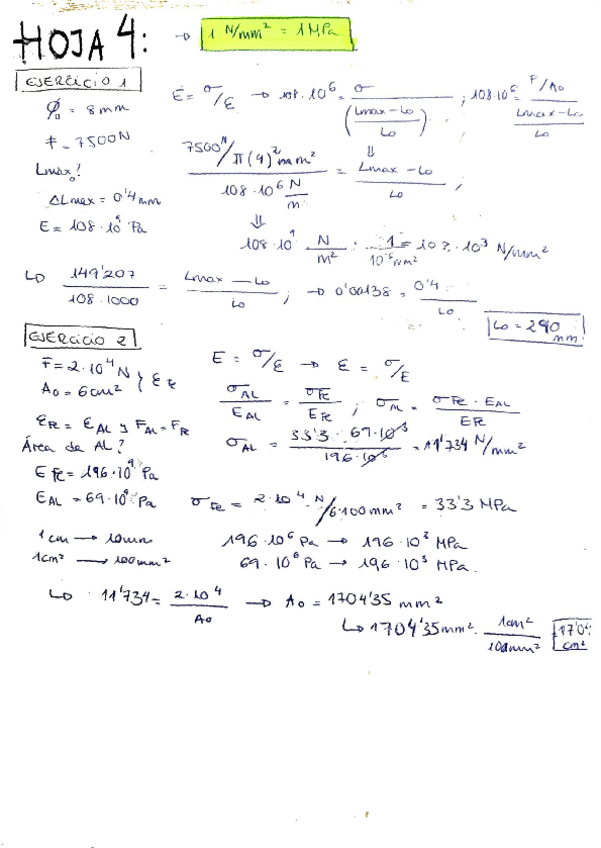 HOJA 4: → 1 N/mm² = 1 MPa
EJERCICIO 1
ϕ₀ = 8mm
F = 7500N
Lmax₀?
ΔLmax = 0'4mm
E = 108·10⁹ Pa
E = σ/ε → 108·10⁶ = σ / ((Lmax - Lo)/Lo) ; 108·10⁶ = (F/Ao) / ((Lmax - Lo)/Lo)
(7500N / π(4)² mm²) / (108·10⁶ N/m) = (Lmax - Lo)/Lo ;
⇓
108·10⁹ N/m² · 1/10⁶mm² = 108·10³ N/mm²
↳ 149'207 / 108·1000 = (Lmax - Lo)/Lo ; → 0'00138 = 0'4/Lo
Lo = 290 mm
EJERCICIO 2
F = 2·10⁴ N
Ao = 6cm² } εFe
εR = εAL y FAL = FR
Área da AL?
EFe = 196·10⁹ Pa
EAL = 69·10⁹ Pa
1cm → 10mm
1cm² → 100mm²
E = σ/ε → ε = σ/E
σAL/EAL = σFe/EFe ; σAL = σFe · EAL / EFe
σAL = 33'3 · 69·10³ / 196·10³ = 11'734 N/mm²
σFe = 2·10⁴ N / 6·100mm² = 33'3 MPa
196·10⁶ Pa → 196·10³ MPa
69·10⁶ Pa → 196·10³ MPa.
↳ 11'734 = 2·10⁴ / Ao → Ao = 1704'35 mm²
↳ 1704'35mm² · 1cm² / 100mm² 17'04 cm²